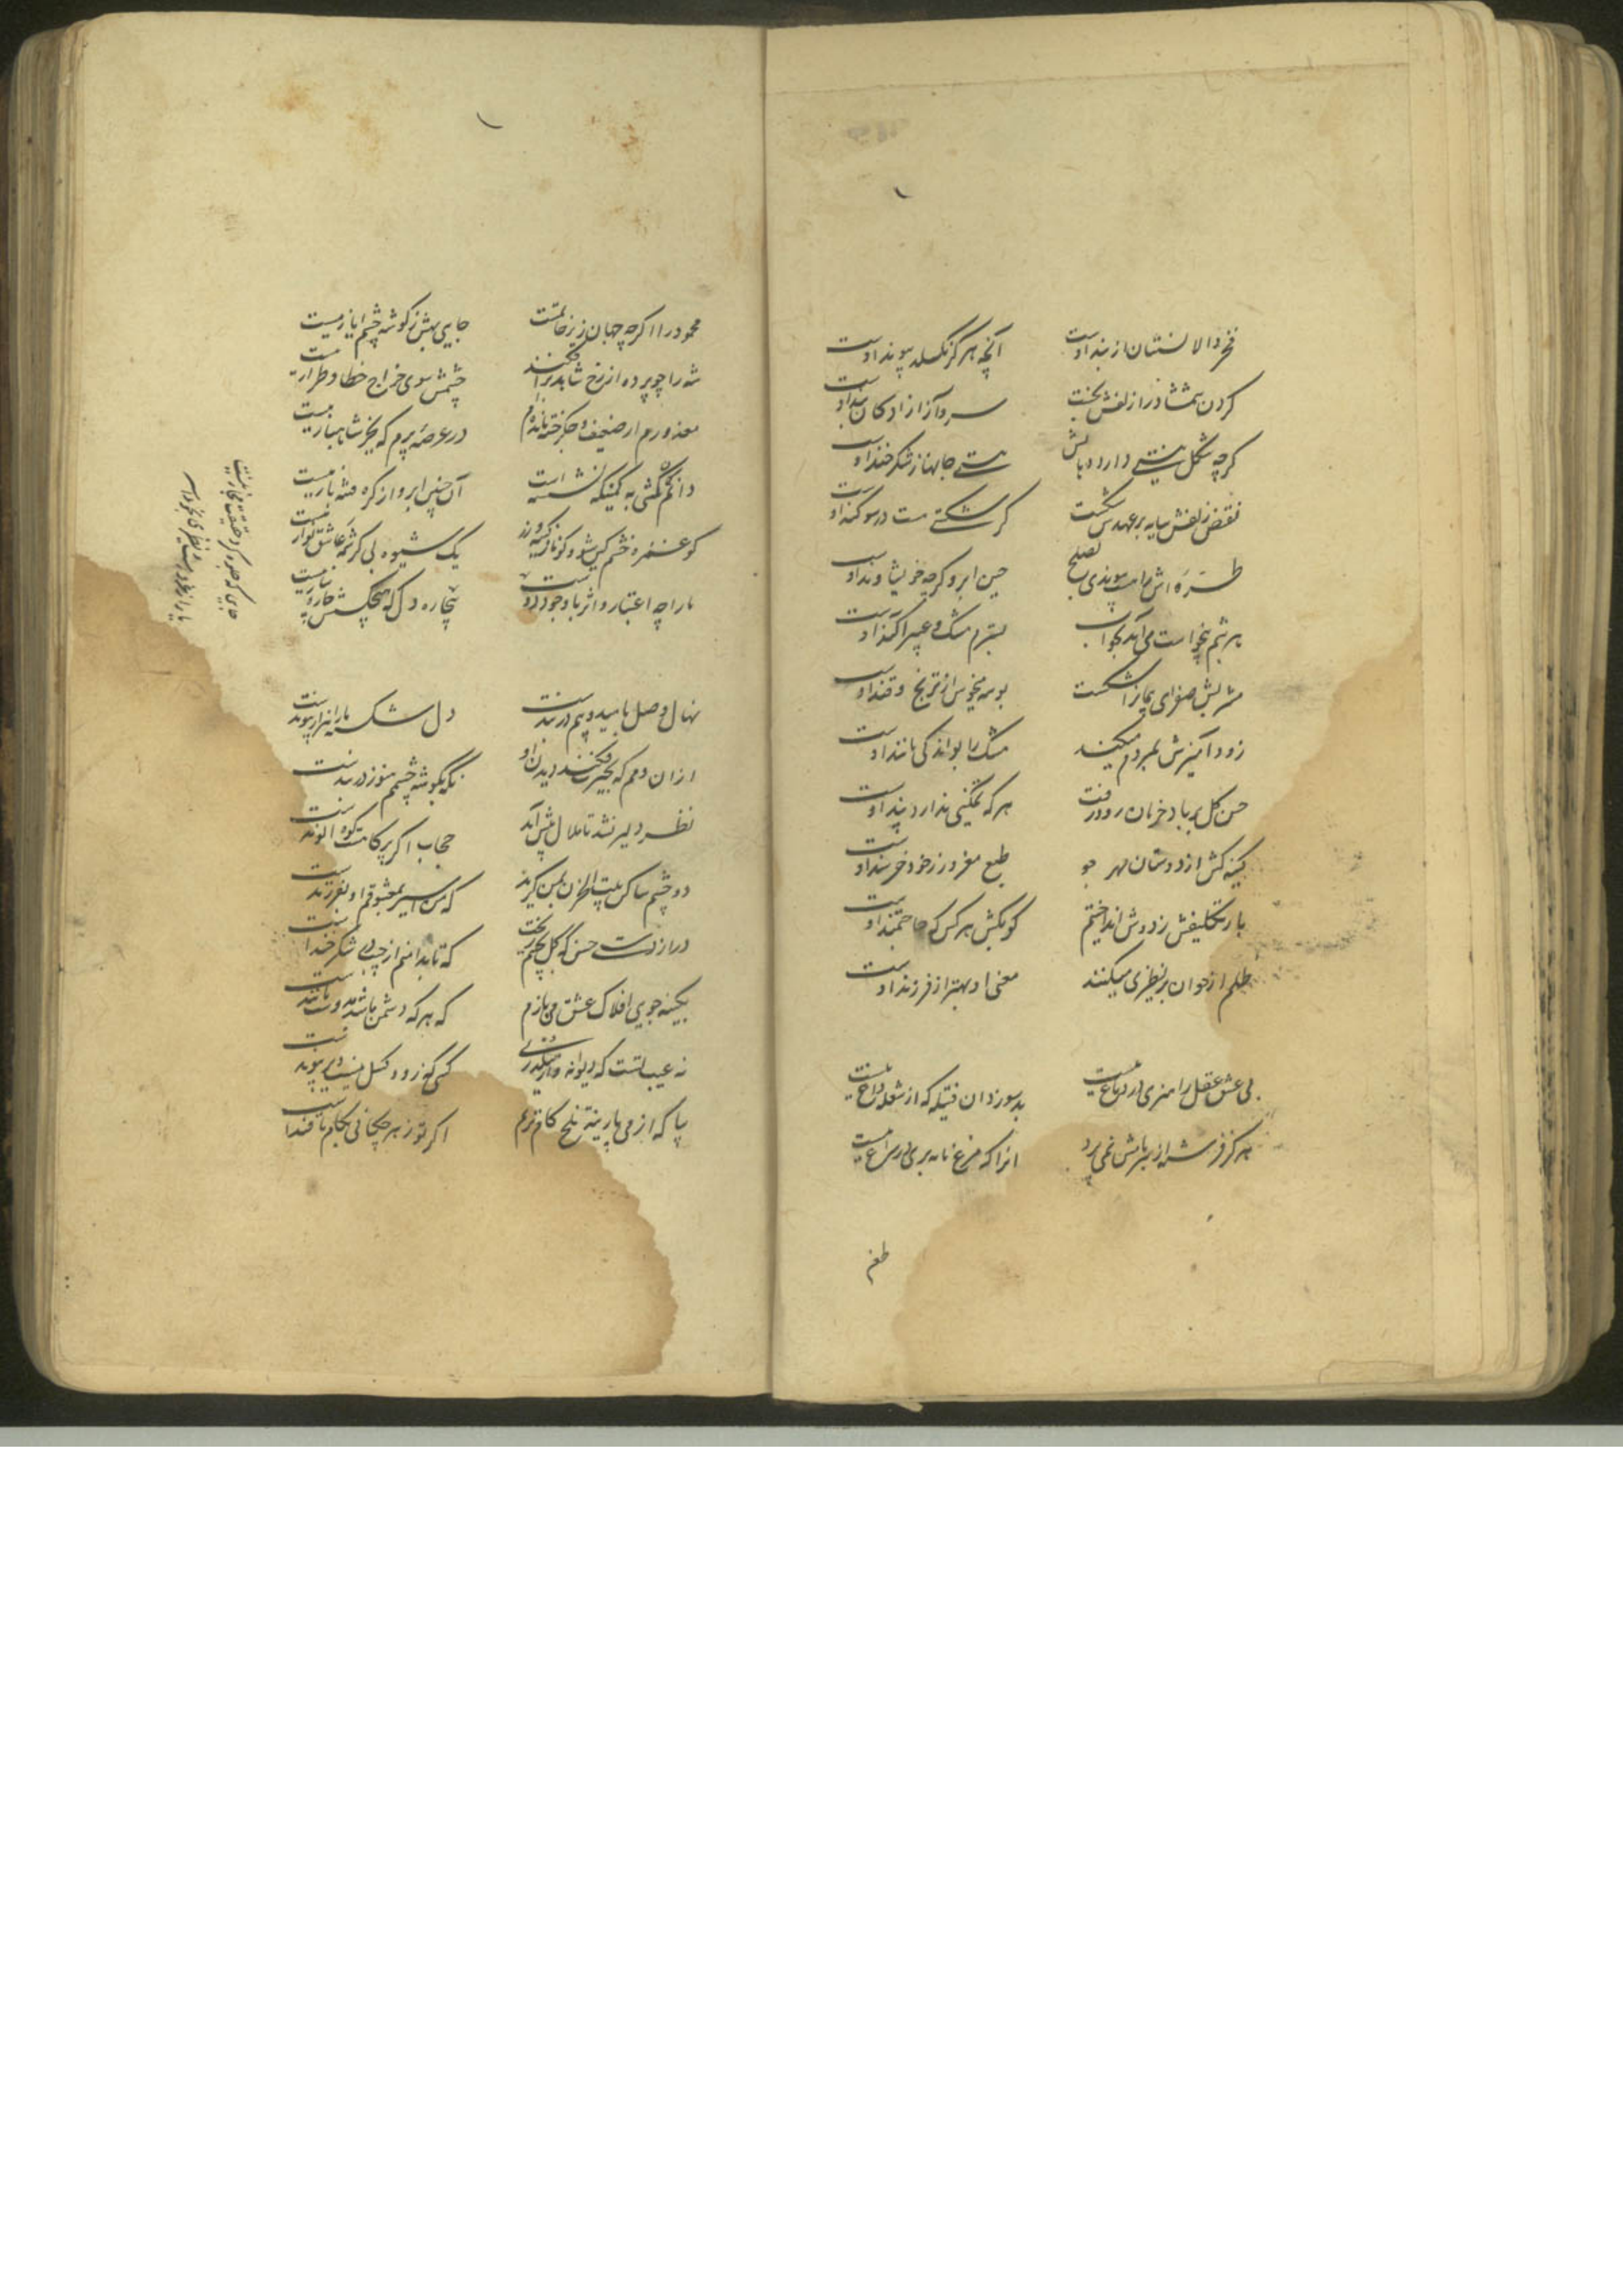 فخر والا نسبتان از بند اوست
آنچه هرگز نگسلد پیوند اوست
گردن شمشاد را زلفش بخست
سرو آزاد از ادکان بند اوست
گرچه شکل نیستی دارد دهانش
هستی جانها ز شکر خند اوست
نقض زلفش سایه بر عهدش شکست
گر شکستی هست در سوگند اوست
طره اش را هست پیوندی بصلح
چین ابرو گرچه خویشاوند اوست
هر شبم بیخواست می آید بخواب
بسترم مشک و عبیر آکند اوست
مشربش صفرای بیمار اشکست
بوسه میخوش از ترنج و قند اوست
زود آمیزش بمردم میکند
مشک را بو اندکی مانند اوست
حسن گل بر باد خرمان رود رفت
هر که تمکینی ندارد پند اوست
کینه کش از دوستان مهر جو
طبع مغرور ز خود خرسند اوست
بار تکلیفش ز دوش انداختیم
گو بکش هر کس که حاجتمند اوست
ظلم از خوان بر نظیری میکنند
معنی او بهتر از فرزند اوست
بی عشق عقل را هنری در دماغ نیست
بد سوزد آن فتیله که از شعله داغ نیست
هرگز فرشته از سر بامش نمی پرد
آنرا که مرغ نامه بری در سراغ نیست
طغم
محمود را اگر چه جهان زیر خاتمست
جایی بهش ز گوشه چشم ایاز نیست
شه را چو پرده از رخ شاهد برافکنند
چشمش سوی خراج خطا و طراز نیست
معذورم ار ضعیف و جگر خسته مانده ام
در عرصه پرم که بجز شاهباز نیست
دانم کشی به کمینگه نشسته است
آن چین ابرو از گره فتنه باز نیست
کو غمزه خشم کین شو و کو ناز کینه ورز
یک شیوه بی کرشمه عاشق نواز نیست
ما را چه اعتبار و اثر با وجود دوست
بیچاره دل که هیچکسش چاره ساز نیست
جایی که جلوه کرد حقیقت مجاز نیست
نهال وصل بامید و بیم در بندست
دل شکسته ما را هزار پیوندست
از آن دمم که بحیرت فکند دیدن او
نگه بگوشه چشمم هنوز در بندست
نظر دلیر نشد تا ملال پیش آمد
حجاب اگر پر کاهست کوه الوندست
دو چشم ساکن بیت الحزن بمن گرید
که من اسیر بمعشوقم او بفرزندست
دراز دستی حسن که گل بجیبم ریخت
که تا بدامنم از چیدن شکر خندست
بکینه جویی افلاک عشق می بازم
که هر که دشمن ما شد بدوست مانندست
نه عیب تست که دیوانه وار میگذری
کسی که زود گسل نیست دیر پیوندست
بیا که از می پارینه تلخ کام ترم
اگر تو زهر چکانی بکام ما قندست